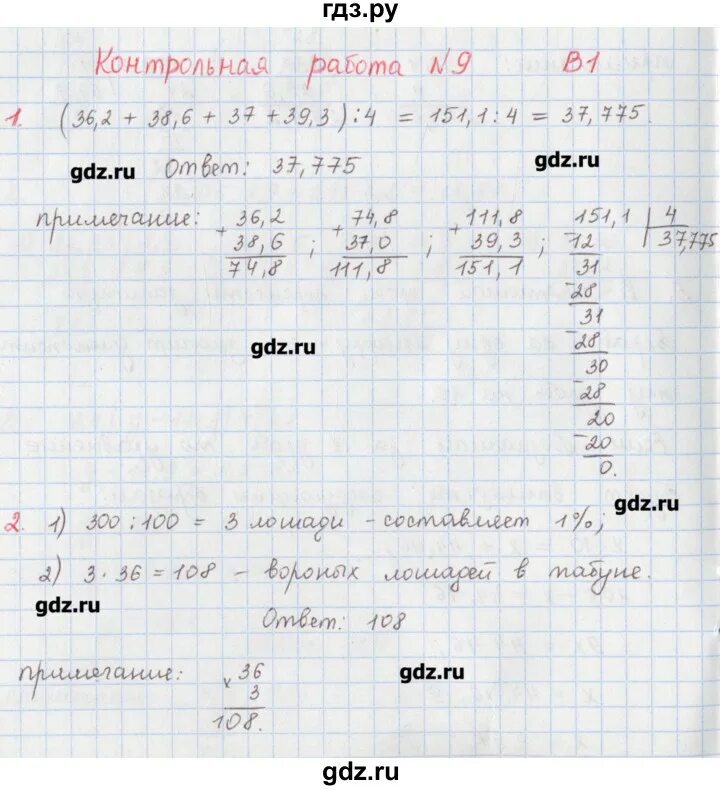 гдз.ру
Контрольная работа №9 В1
1. (36,2 + 38,6 + 37 + 39,3) : 4 = 151,1 : 4 = 37,775.
gdz.ru
Ответ: 37,775
gdz.ru
примечание: + 36,2 + 74,8 + 111,8 151,1 | 4
38,6 ; 37,0 ; 39,3 ; -12 37,775
74,8 111,8 151,1 31
-28
31
gdz.ru
-28
30
-28
20
-20
0.
gdz.ru
2. 1) 300 : 100 = 3 лошади - составляет 1%;
2) 3 · 36 = 108 - вороных лошадей в табуне.
gdz.ru
Ответ: 108
примечание: x 36
gdz.ru
3
108.
gdz.ru